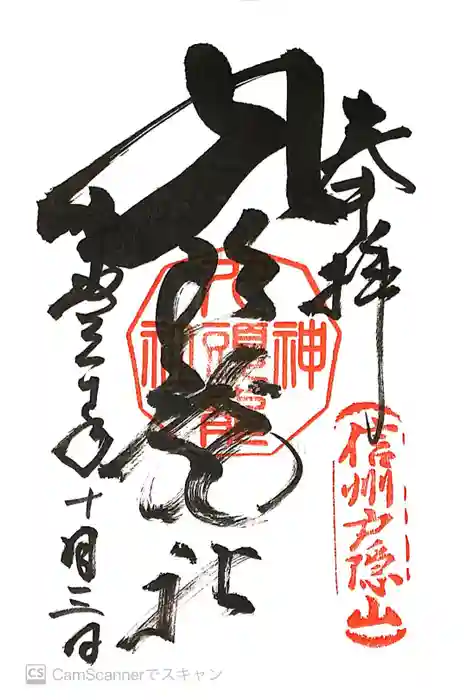 奉拝
信州戸隠山
九頭龍社
九頭龍神社
三年十月三日
CS CamScannerでスキャン